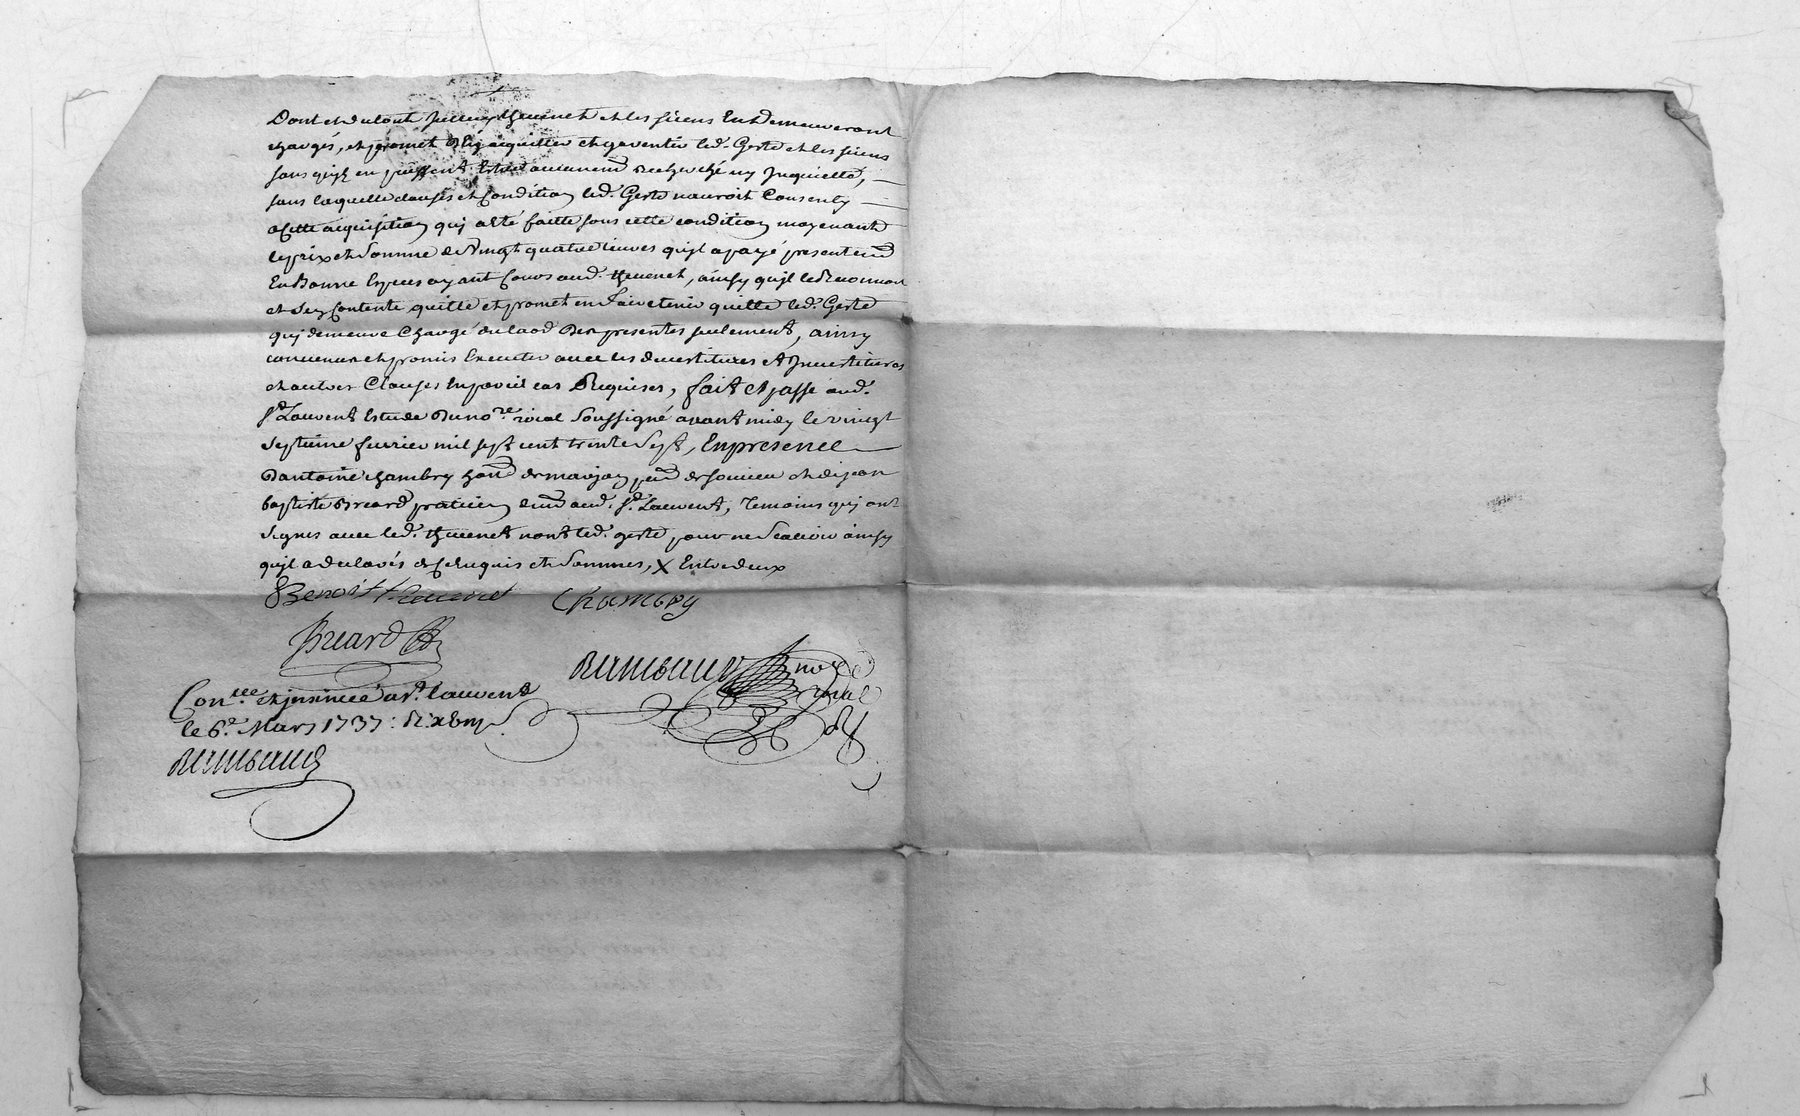 Dont et du tout ledit thevenet et les siens En demeureront
chargés, et promet d'En aquitter et garentir led. Geste et les siens
sans quil en puissent Estre aucunemt Recherché ny Inquietté,
sans laquelle clause et Condition led. Geste nauroit Consenty
a Cette acquisition qui a été faitte sous cette condition moyenant
le prix et somme de Vingt quatre livres quil a payé presentemt
En Bonne Espece ayant Cours aud. thevenet, ainsy quil le Reconnoit
et sen Contente, quitte et promet en faire tenir quitte led. Geste
qui demeure Chargé du laod Des presentes seulement, ainsy
convenu et promis Executer avec les devestitures et Investitures
et autres Clauses En pareil cas Requises, fait et passé aud.
St Laurent Estude Du nore roial Soussigné avant midy le vingt
septieme fevrier mil sept cent trente Sept, En presence
D'antoine chambry de et de jean
baptiste Breard praticien demt aud. St. Laurent, Temoins qui ont
signes avec led. thevenet non led. geste, pour ne sçavoir ainsy
quil a declarés de ce Requis et sommes, X Entre deux
Benoit thevenet Chambry
Breard
Raimbaud nore
roial
Conllé et insinué a St. Laurent
le 6e. Mars 1737:
Raimbaud